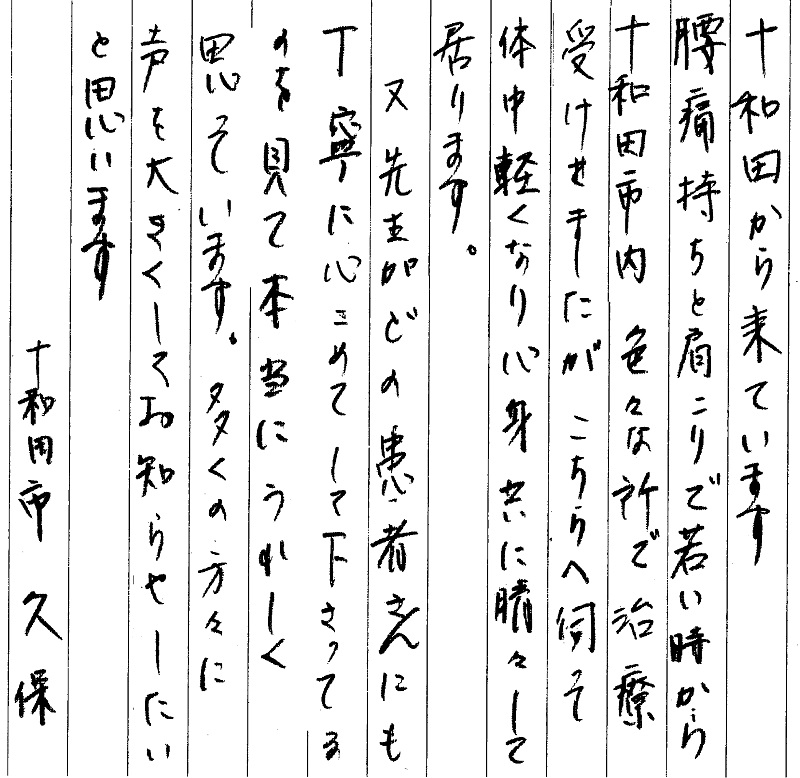 十和田から来ています
腰痛持ちと肩こりで若い時から
十和田市内 色々な所で治療
受けせましたが こちらへ伺って
体中軽くなり心身共に晴々して
居ります。
又先生がどの患者さんにも
丁寧に心こめてして下さってる
のを見て本当にうれしく
思っています。多くの方々に
声を大きくしてお知らせしたい
と思います
十和田市 久保